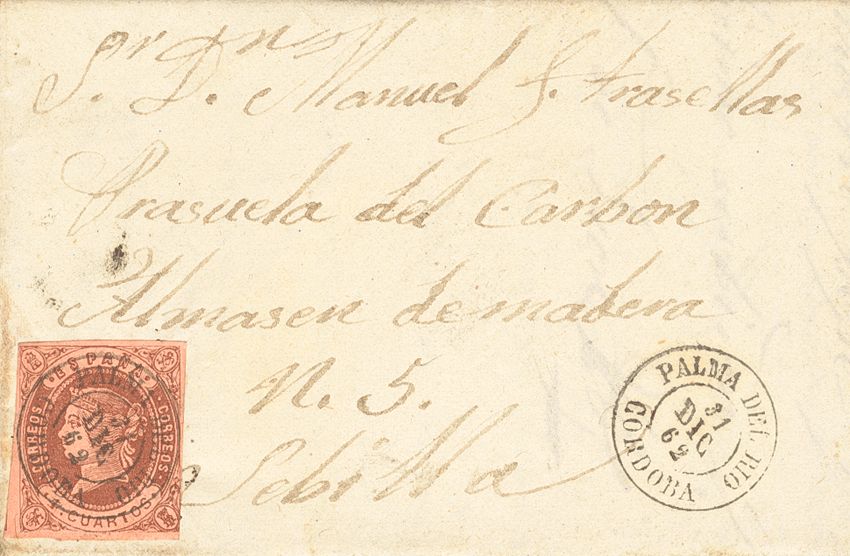 Sr. Dn. Manuel J. Frasellas
Prasuela del Carbon
Almasen de madera
N. 5.
Sebilla
ESPAÑA
CORREOS
CORREOS
4 CUARTOS
PALMA DEL RIO
31
DIC
62
CORDOBA
PALMA DEL RIO
31
DIC
62
CORDOBA